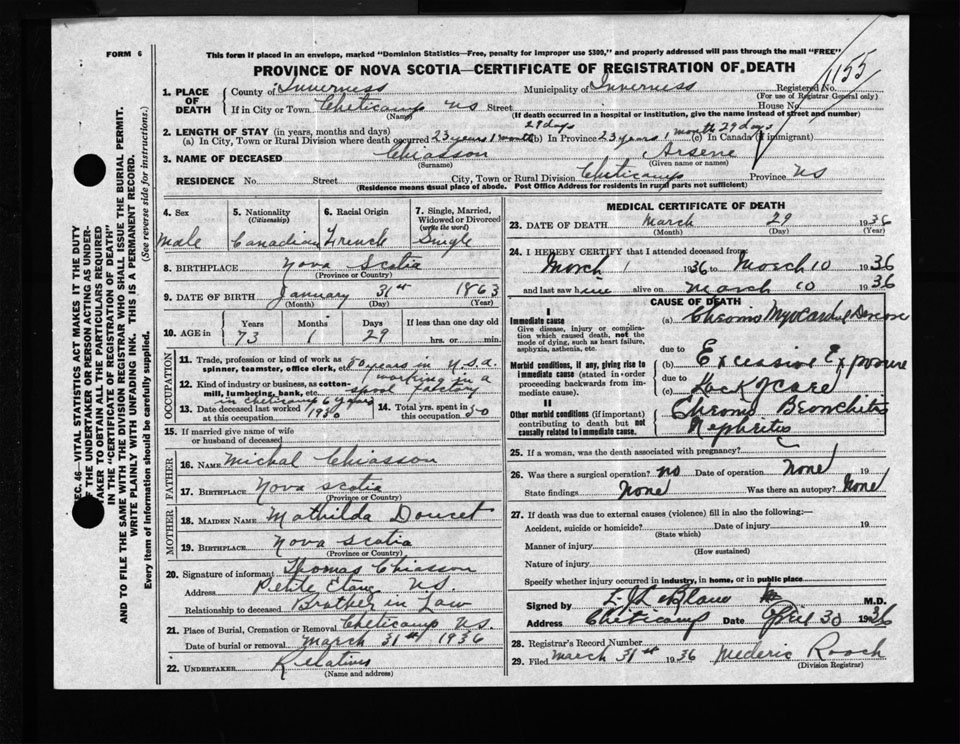 FORM 6
This form if placed in an envelope, marked "Dominion Statistics—Free, penalty for improper use $300," and properly addressed will pass through the mail "FREE"
PROVINCE OF NOVA SCOTIA—CERTIFICATE OF REGISTRATION OF DEATH
1155
1. PLACE OF DEATH
County of Inverness Municipality of Inverness Registered No.
(For use of Registrar General only)
If in City or Town Cheticamp NS Street House No.
(Name) (If death occurred in a hospital or institution, give the name instead of street and number)
2. LENGTH OF STAY (in years, months and days) 29 days
(a) In City, Town or Rural Division where death occurred 23 years 1 month (b) In Province 23 years 1 month 29 days (c) In Canada (if immigrant)
3. NAME OF DECEASED Chiasson Arsene
(Surname) (Given name or names)
RESIDENCE No. Street City, Town or Rural Division Cheticamp Province NS
(Residence means usual place of abode. Post Office Address for residents in rural parts not sufficient)
4. Sex
Male
5. Nationality
(Citizenship)
Canadian
6. Racial Origin
French
7. Single, Married, Widowed or Divorced
(write the word)
Single
8. BIRTHPLACE Nova Scotia
(Province or Country)
9. DATE OF BIRTH January 31st 1863
(Month) (Day) (Year)
10. AGE in
Years Months Days If less than one day old
73 1 29 hrs. or min.
OCCUPATION
11. Trade, profession or kind of work as
spinner, teamster, office clerk, etc. 50 years in U.S.A.
working in a
12. Kind of industry or business, as cotton-
mill, lumbering, bank, etc. spool factory
in Cheticamp 6 years
13. Date deceased last worked 1930
at this occupation
14. Total yrs. spent in 50
this occupation
15. If married give name of wife
or husband of deceased
FATHER
16. NAME Michal Chiasson
17. BIRTHPLACE Nova Scotia
(Province or Country)
MOTHER
18. MAIDEN NAME Mathilda Doucet
19. BIRTHPLACE Nova Scotia
(Province or Country)
20. Signature of informant Thomas Chiasson
Address Petite Etang NS.
Relationship to deceased Brother in Law
21. Place of Burial, Cremation or Removal Cheticamp NS.
Date of burial or removal March 31st 1936
22. UNDERTAKER Relatives
(Name and address)
MEDICAL CERTIFICATE OF DEATH
23. DATE OF DEATH March 29 1936
(Month) (Day) (Year)
24. I HEREBY CERTIFY that I attended deceased from
March 1 1936 to March 10 1936
and last saw him alive on March 10 1936
CAUSE OF DEATH
I
Immediate cause
Give disease, injury or complication which caused death, not the mode of dying, such as heart failure, asphyxia, asthenia, etc.
(a) Chronic Myocardial Disease
due to
Morbid conditions, if any, giving rise to immediate cause (stated in order proceeding backwards from immediate cause).
(b) Excessive Exposure
due to
(c) Lack of Care
II
Other morbid conditions (if important) contributing to death but not causally related to immediate cause.
Chronic Bronchitis
Nephritis
25. If a woman, was the death associated with pregnancy?
26. Was there a surgical operation? no Date of operation None 19
State findings None Was there an autopsy? None
27. If death was due to external causes (violence) fill in also the following:—
Accident, suicide or homicide? Date of injury 19
(State which)
Manner of injury
(How sustained)
Nature of injury
Specify whether injury occurred in industry, in home, or in public place
Signed by LeBlanc M.D.
Address Cheticamp Date April 30 1936
28. Registrar's Record Number
29. Filed March 31st 1936 Mederic Roach
(Division Registrar)
SEC. 46—VITAL STATISTICS ACT MAKES IT THE DUTY
OF THE UNDERTAKER OR PERSON ACTING AS UNDER-
TAKER TO OBTAIN ALL THE PARTICULARS REQUIRED
IN THE "CERTIFICATE OF REGISTRATION OF DEATH"
AND TO FILE THE SAME WITH THE DIVISION REGISTRAR WHO SHALL ISSUE THE BURIAL PERMIT.
WRITE PLAINLY WITH UNFADING INK. THIS IS A PERMANENT RECORD.
Every item of information should be carefully supplied. (See reverse side for instructions.)